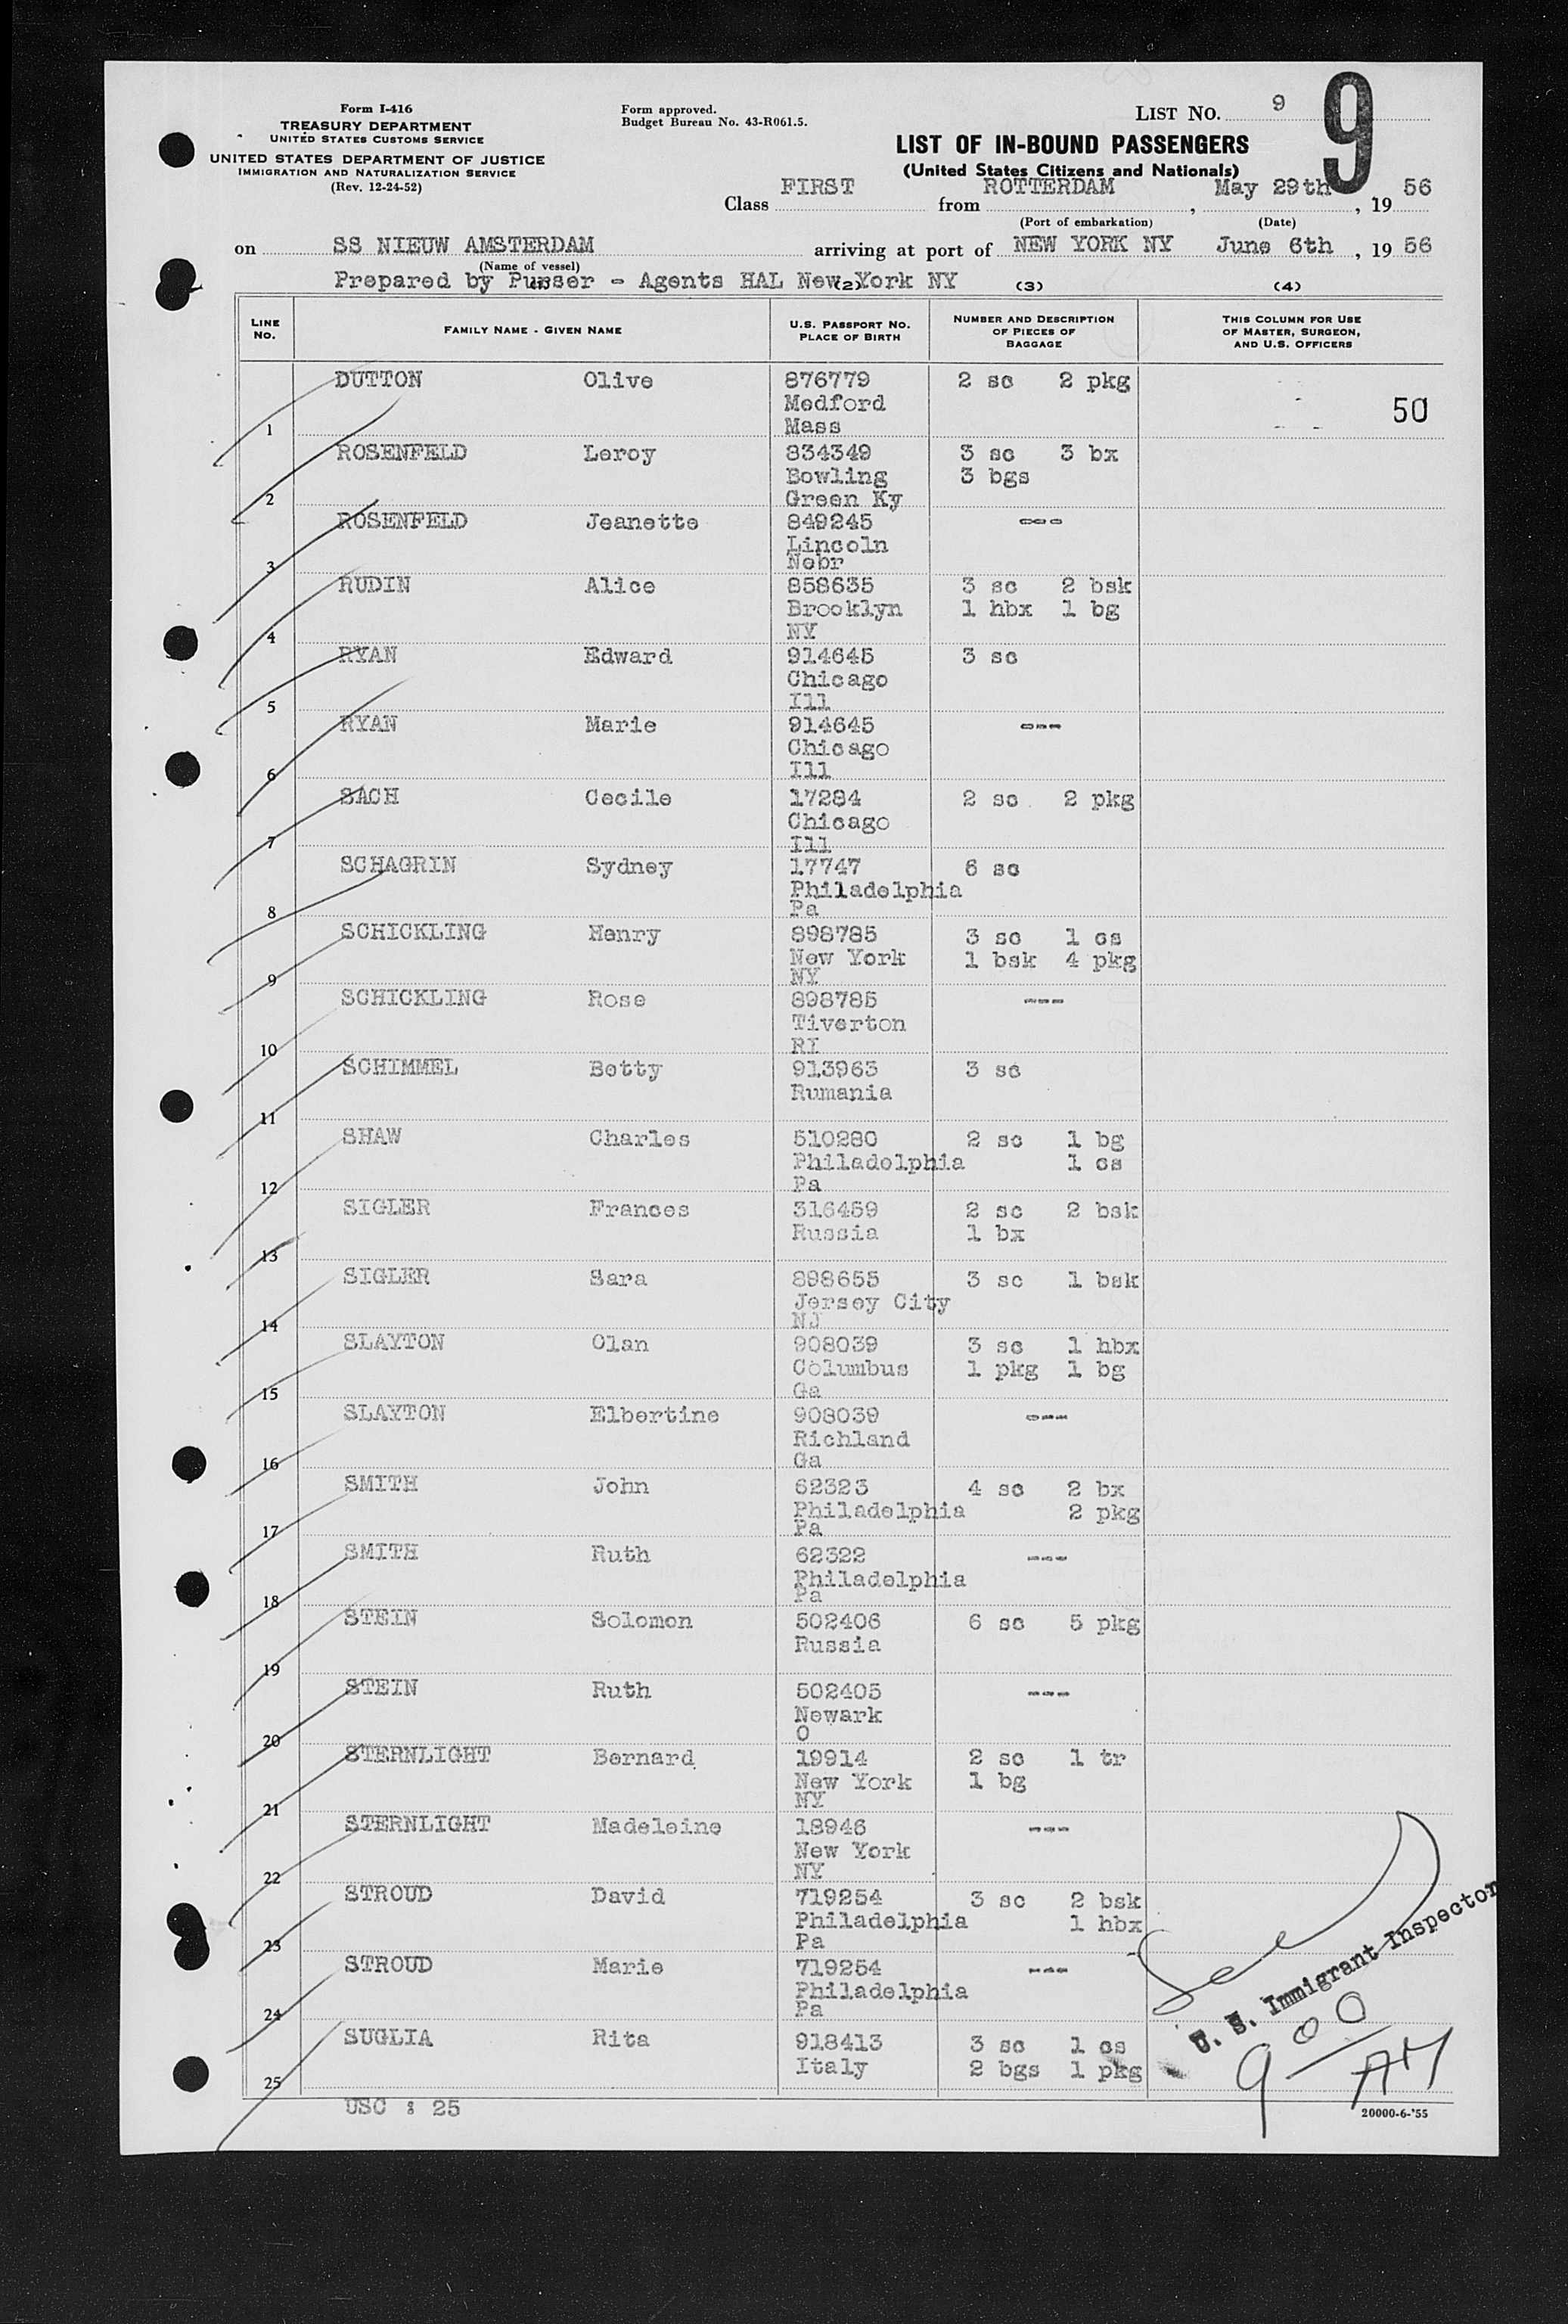 Form I-416
TREASURY DEPARTMENT
UNITED STATES CUSTOMS SERVICE
UNITED STATES DEPARTMENT OF JUSTICE
IMMIGRATION AND NATURALIZATION SERVICE
(Rev. 12-24-52)
Form approved.
Budget Bureau No. 43-R061.5.
LIST NO. 9
9
LIST OF IN-BOUND PASSENGERS
(United States Citizens and Nationals)
Class FIRST from ROTTERDAM, May 29th, 19 56
(Port of embarkation) (Date)
on SS NIEUW AMSTERDAM arriving at port of NEW YORK NY June 6th, 19 56
(Name of vessel)
Prepared by Purser - Agents HAL New York NY
(1) (2) (3) (4)
LINE NO. FAMILY NAME - GIVEN NAME U.S. PASSPORT NO. PLACE OF BIRTH NUMBER AND DESCRIPTION OF PIECES OF BAGGAGE THIS COLUMN FOR USE OF MASTER, SURGEON, AND U.S. OFFICERS
DUTTON Olive 876779 2 sc 2 pkg
Medford 50
1 Mass
ROSENFELD Leroy 834349 3 sc 3 bx
Bowling 3 bgs
2 Green Ky
ROSENFELD Jeanette 849245 ---
Lincoln
3 Nebr
RUDIN Alice 858635 3 sc 2 bsk
Brooklyn 1 hbx 1 bg
4 NY
RYAN Edward 914645 3 sc
Chicago
5 Ill
RYAN Marie 914645 ---
Chicago
6 Ill
SACH Cecile 17284 2 sc 2 pkg
Chicago
7 Ill
SCHAGRIN Sydney 17747 6 sc
Philadelphia
8 Pa
SCHICKLING Henry 898785 3 sc 1 cs
New York 1 bsk 4 pkg
9 NY
SCHICKLING Rose 898785 ---
Tiverton
10 RI
SCHIMMEL Betty 913963 3 sc
Rumania
11
SHAW Charles 510280 2 sc 1 bg
Philadelphia 1 cs
12 Pa
SIGLER Frances 316459 2 sc 2 bsk
Russia 1 bx
13
SIGLER Sara 898655 3 sc 1 bsk
Jersey City
14 NJ
SLAYTON Olan 908039 3 sc 1 hbx
Columbus 1 pkg 1 bg
15 Ga
SLAYTON Elbertine 908039 ---
Richland
16 Ga
SMITH John 62323 4 sc 2 bx
Philadelphia 2 pkg
17 Pa
SMITH Ruth 62322 ---
Philadelphia
18 Pa
STEIN Solomon 502406 6 sc 5 pkg
Russia
19
STEIN Ruth 502405 ---
Newark
20 O
STERNLIGHT Bernard 19914 2 sc 1 tr
New York 1 bg
21 NY
STERNLIGHT Madeleine 18946 ---
New York
22 NY
STROUD David 719254 3 sc 2 bsk
Philadelphia 1 hbx
23 Pa
STROUD Marie 719254 ---
Philadelphia
24 Pa
SUGLIA Rita 918413 3 sc 1 cs
Italy 2 bgs 1 pkg
25
U. S. Immigrant Inspector
9 00 AM
USC : 25
20000-6-'55